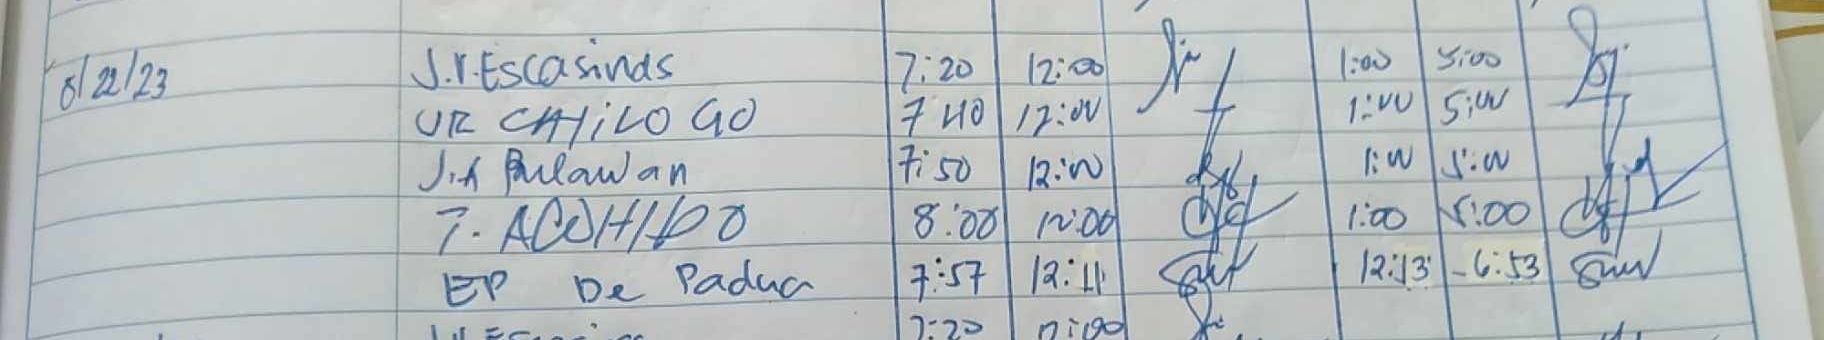 8/22/23 J.V. Escasinas 7:20 12:00 1:00 5:00
UR CAHiLO GO 7:40 12:00 1:00 5:00
J.A Bulawan 7:50 12:00 1:00 5:00
T. ACOHIDO 8:00 12:00 1:00 5:00
EP De Padua 7:57 12:11 12:13 - 6:53
7:20